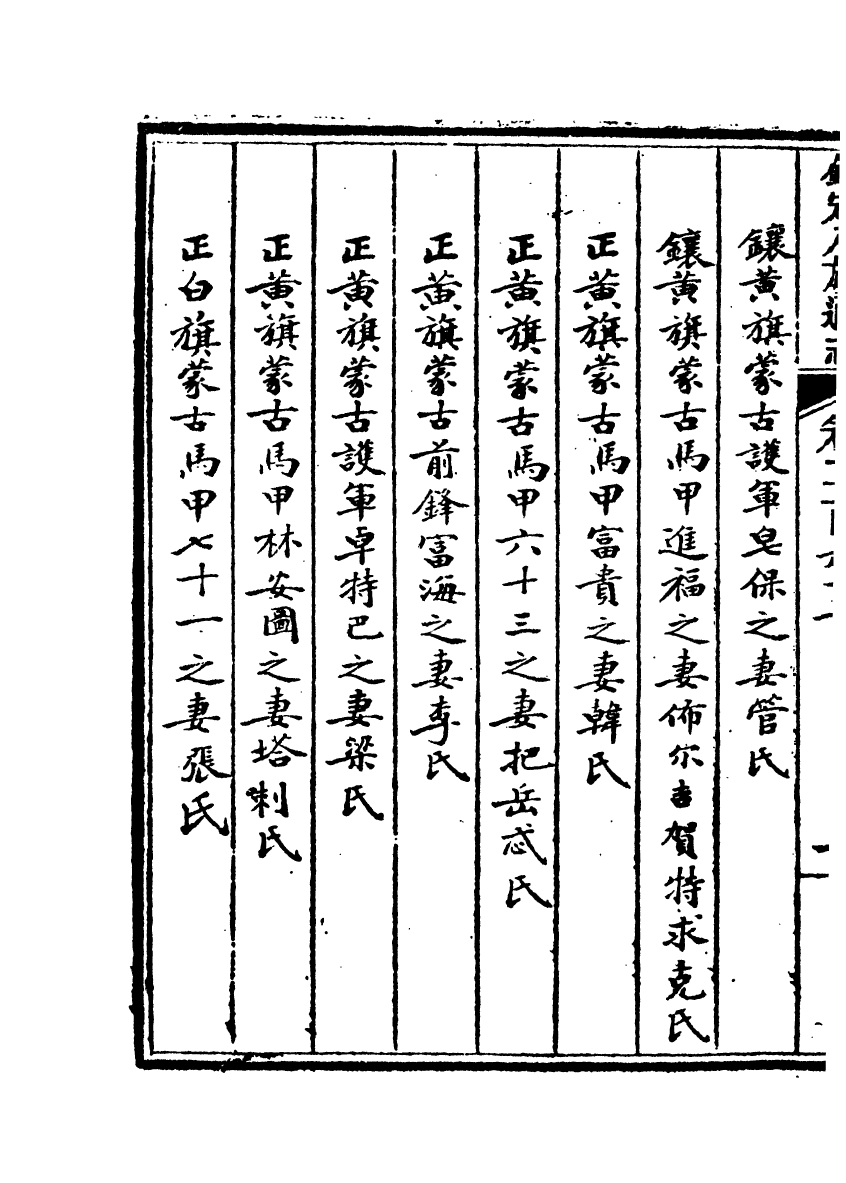 鑲黃旗蒙古護軍皂保之妻管氏
鑲黃旗蒙古馬甲進福之妻佈尔吉賀特求克氏
正黃旗蒙古馬甲富貴之妻韓氏
正黃旗蒙古馬甲六十三之妻把岳忒氏
正黃旗蒙古前鋒富海之妻李氏
正黃旗蒙古護軍卓特巴之妻梁氏
正黃旗蒙古馬甲林安圖之妻塔喇氏
正白旗蒙古馬甲七十一之妻張氏